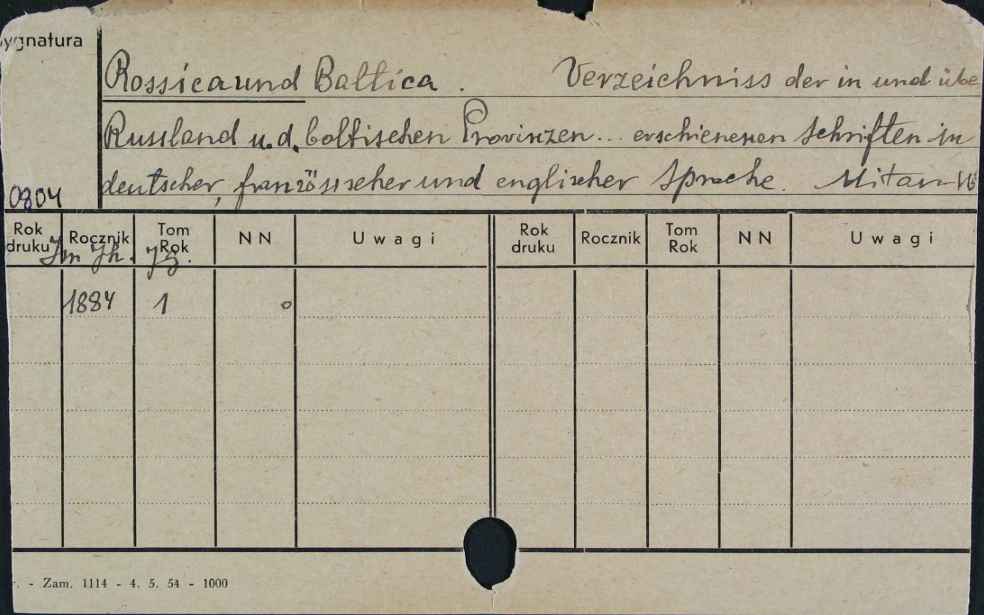 ygnatura
Rossica und Baltica. Verzeichniss der in und übe
Russland u. d. baltischen Provinzen... erschienenen Schriften in
0804 deutscher, französischer und englischer Sprache. Mitau-
Rok druku Rocznik Tom Rok NN Uwagi Rok druku Rocznik Tom Rok NN Uwagi
Jh. Jg.
1884 1 0
. - Zam. 1114 - 4. 5. 54 - 1000